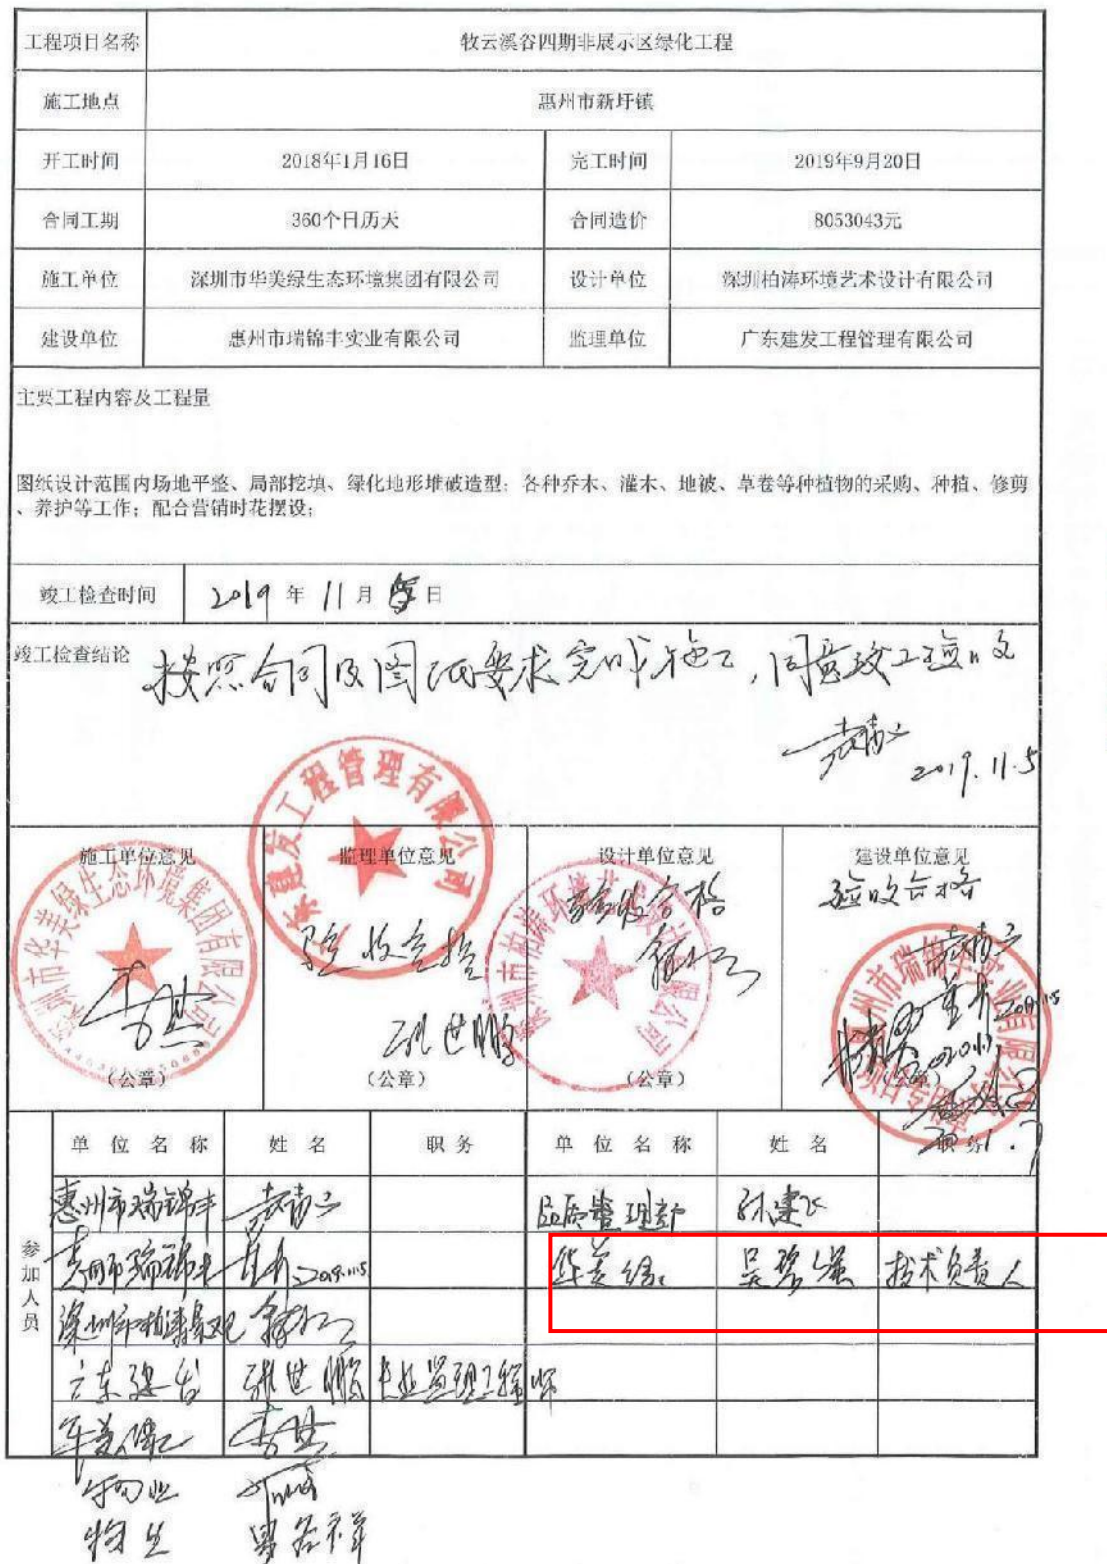 工程项目名称 牧云溪谷四期非展示区绿化工程
施工地点 惠州市新圩镇
开工时间 2018年1月16日 完工时间 2019年9月20日
合同工期 360个日历天 合同造价 8053043元
施工单位 深圳市华美绿生态环境集团有限公司 设计单位 深圳柏涛环境艺术设计有限公司
建设单位 惠州市瑞锦丰实业有限公司 监理单位 广东建发工程管理有限公司
主要工程内容及工程量
图纸设计范围内场地平整、局部挖填、绿化地形堆破造型；各种乔木、灌木、地被、草卷等种植物的采购、种植、修剪
、养护等工作；配合营销时花摆设；
竣工检查时间 2019 年 11 月 日
竣工检查结论 按照合同及图纸要求完成施工，同意竣工验收
2019.11.5
施工单位意见 监理单位意见 设计单位意见 建设单位意见
验收合格 验收合格 验收合格
张世鹏
（公章） （公章） （公章） （公章）
参加人员 单位名称 姓名 职务 单位名称 姓名 职务
惠州市瑞锦丰 品质管理部 孙建飞
惠州市瑞锦丰 2019.11.5 华美绿 吴碧强 技术负责人
深圳市柏涛景观
广东建发 张世鹏 专业监理工程师
华美绿
物业
物业